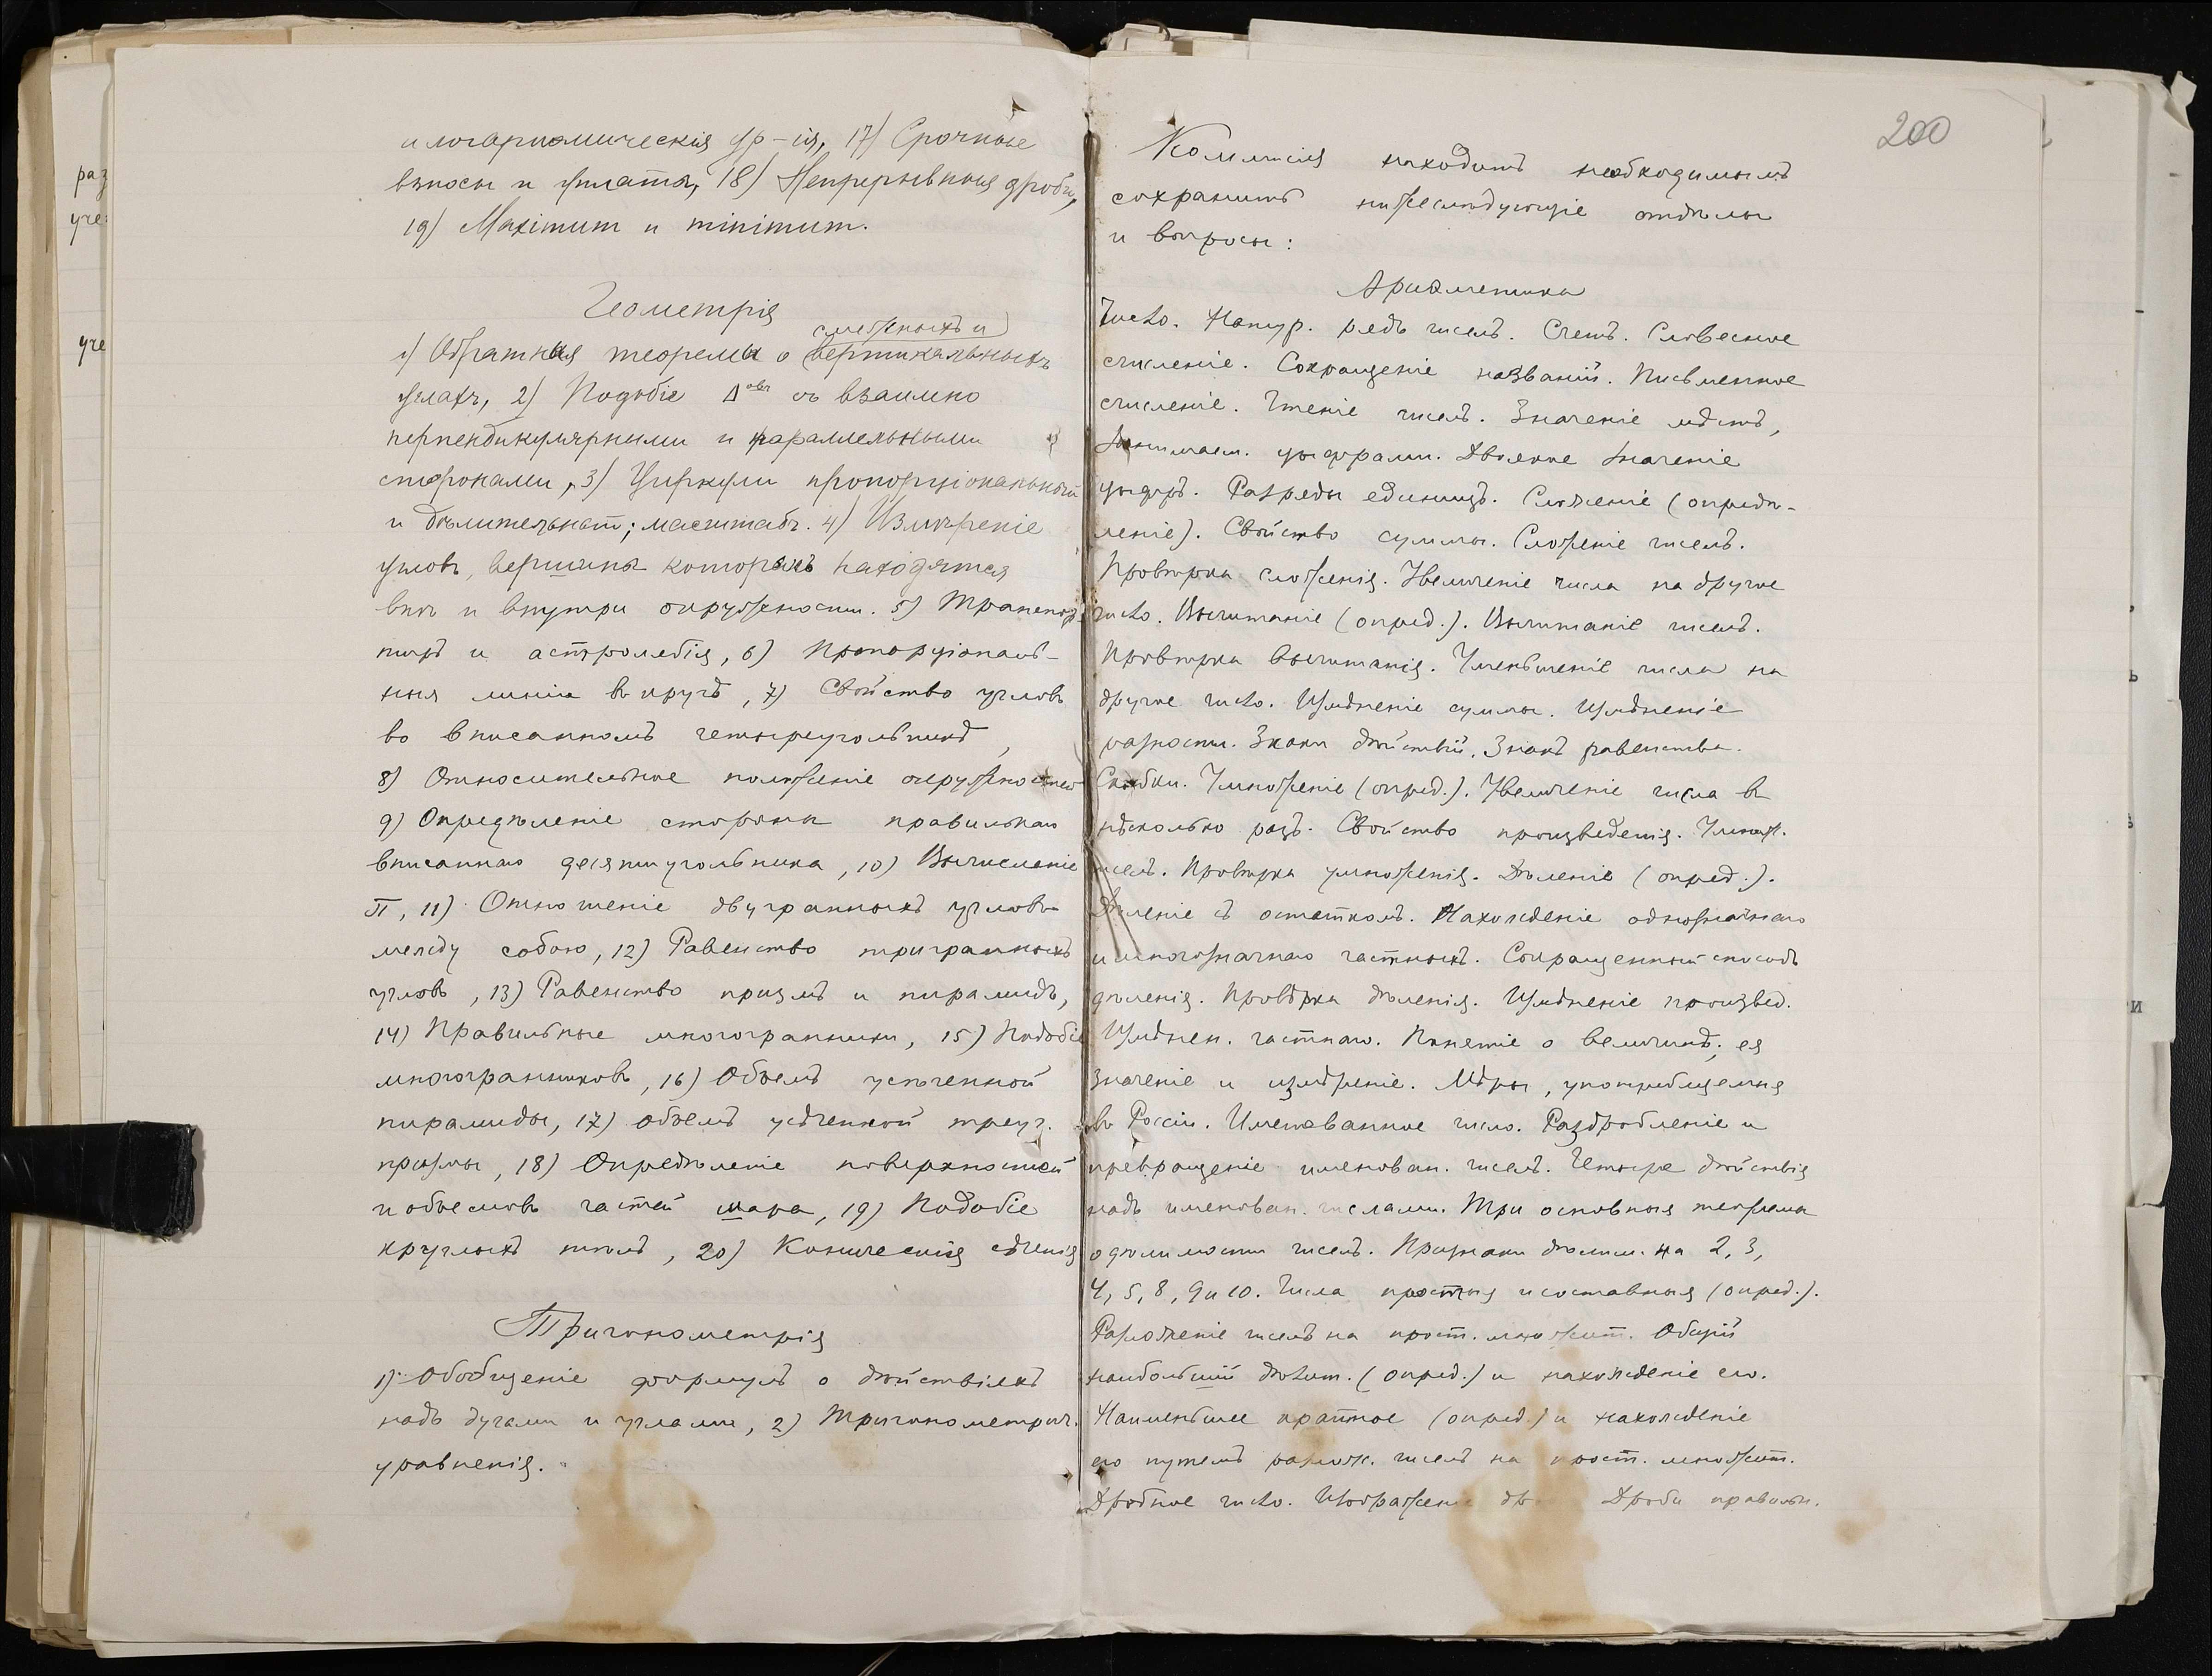 и логариѳмическія ур-ія, 17) Срочные
взносы и уплаты, 18) Непрерывныя дроби,
19) Maximum и minimum.
Геометрія
смежныхъ и
1) Обратная теорема о вертикальныхъ
углахъ, 2) Подобіе Δовъ съ взаимно
перпендикулярными и параллельными
сторонами, 3) Циркули пропорціональный
и дѣлительный; масштабъ. 4) Измѣреніе
угловъ, вершины которыхъ находятся
внѣ и внутри окружности. 5) Транспор-
тиръ и астролябія, 6) Пропорціональ-
ныя линіи въ кругѣ, 7) Свойство угловъ
во вписанномъ четыреугольникѣ,
8) Относительное положеніе окружностей
9) Опредѣленіе стороны правильнаго
вписаннаго десятиугольника, 10) Вычисленіе
π, 11) Отношеніе двугранныхъ угловъ
между собою, 12) Равенство тригранныхъ
угловъ, 13) Равенство призмъ и пирамидъ,
14) Правильные многогранники, 15) Подобіе
многогранниковъ, 16) Объемъ усѣченной
пирамиды, 17) объемъ усѣченной треуг.
призмы, 18) Опредѣленіе поверхностей
и объемовъ частей шара, 19) Подобіе
круглыхъ тѣлъ, 20) Коническія сѣченія
Тригонометрія
1) Обобщеніе формулъ о дѣйствіяхъ
надъ дугами и углами, 2) Тригонометрич.
уравненія.
200
Комиссія находитъ необходимымъ
сохранить нижеслѣдующіе отдѣлы
и вопросы:
Ариѳметика
Число. Натур. рядъ чиселъ. Счетъ. Словесное
счисленіе. Сокращеніе названій. Письменное
счисленіе. Чтеніе чиселъ. Значеніе мѣстъ,
занимаем. цыфрами. Двоякое значеніе
цыфръ. Разряды единицъ. Сложеніе (опредѣ-
леніе). Свойство суммы. Сложеніе чиселъ.
Провѣрка сложенія. Увеличеніе числа на другое
число. Вычитаніе (опред.). Вычитаніе чиселъ.
Провѣрка вычитанія. Уменьшеніе числа на
другое число. Измѣненіе суммы. Измѣненіе
разности. Знаки дѣйствій. Знакъ равенства.
Скобки. Умноженіе (опред.). Увеличеніе числа въ
нѣсколько разъ. Свойство произведенія. Умнож.
чиселъ. Провѣрка умноженія. Дѣленіе (опред.).
Дѣленіе съ остаткомъ. Нахожденіе однозначнаго
и многозначнаго частныхъ. Сокращенный способъ
дѣленія. Провѣрка дѣленія. Измѣненіе произвед.
Измѣнен. частнаго. Понятіе о величинѣ; ея
значеніе и измѣреніе. Мѣры, употребляемыя
въ Россіи. Именованное число. Раздробленіе и
превращеніе именован. чиселъ. Четыре дѣйствія
надъ именован. числами. Три основныя теоремы
о дѣлимости чиселъ. Признаки дѣлим. на 2, 3,
4, 5, 8, 9 и 10. Числа простыя и составныя (опред.).
Разложеніе чиселъ на прост. множит. Общій
наибольшій дѣлит. (опред.) и нахожденіе его.
Наименьшее кратное (опред.) и нахожденіе
его путемъ разлож. чиселъ на прост. множит.
Дробное число. Изображеніе Дроби правильн.